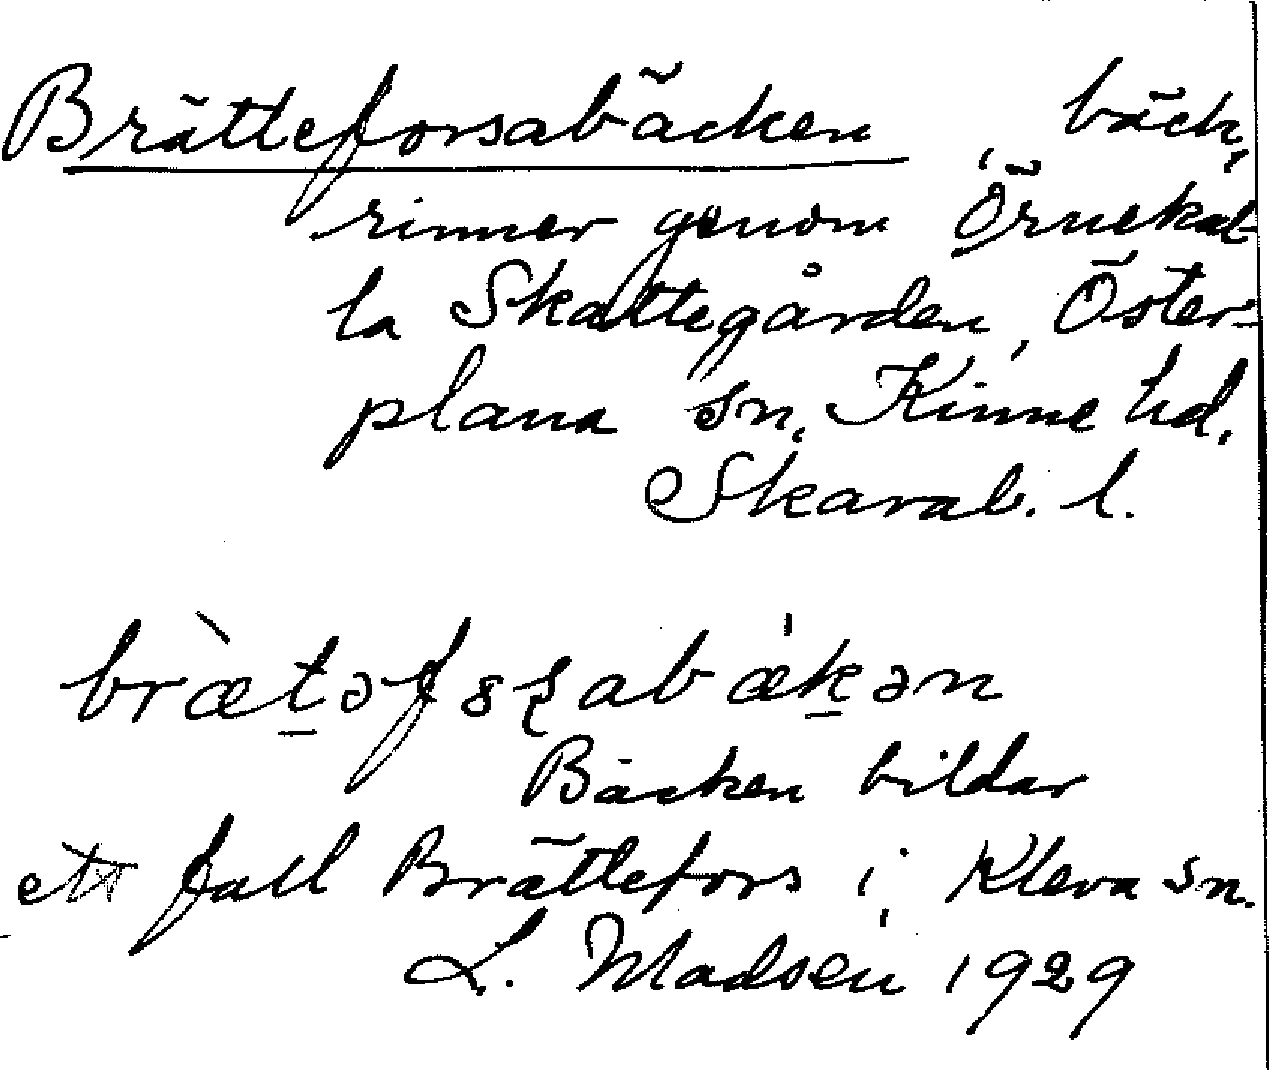 Brätteforsabäcken, bäck,
rinner genom Örnekul-
la Skattegården, Öster-
plana sn, Kinne hd.
Skarab. l.
bræ̀t̠əfs̭abæ̍k̠ən
Bäcken bildar
ett fall Brättefors i Kleva sn.
L. Madsén 1929